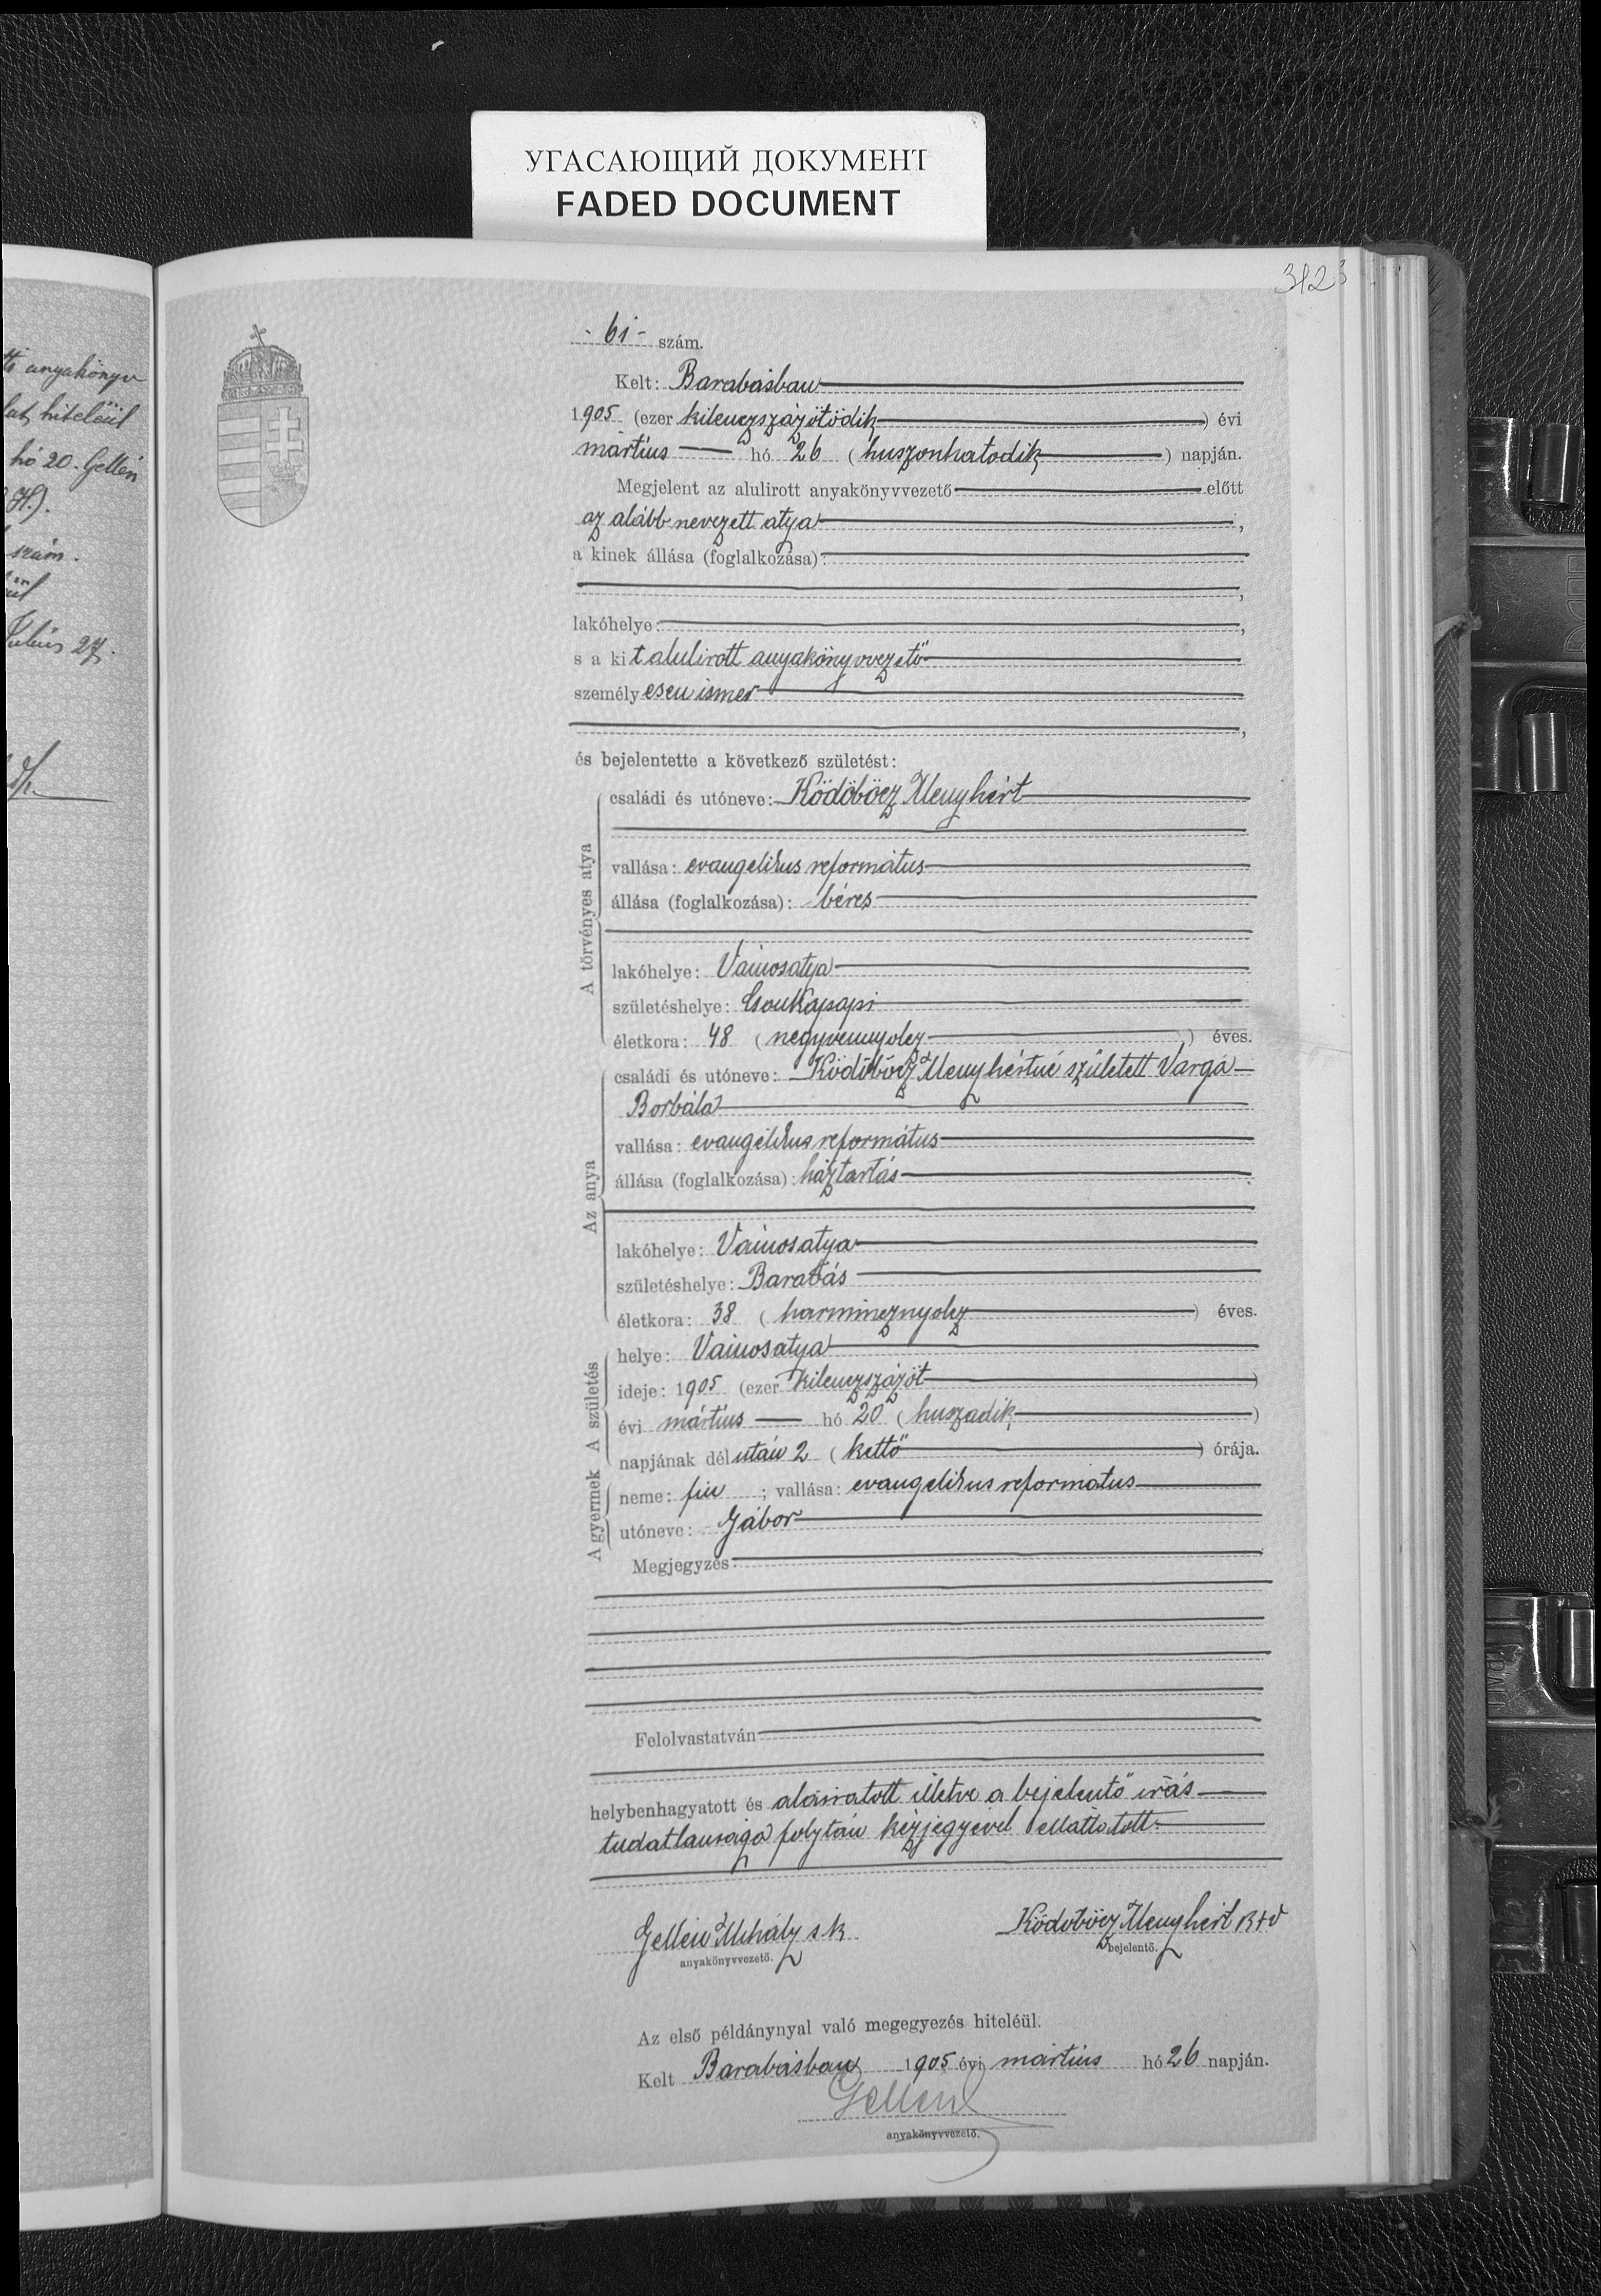 УГАСАЮЩИЙ ДОКУМЕНТ
FADED DOCUMENT
tti anyakönyv
hiteléül
hó 20. Gelléri
H.).
szám.
Julius 27.
- 61 - szám.
Kelt: Barabásban
1905 (ezer kilenczszázötödik) évi
mártius hó 26 (huszonhatodik) napján.
Megjelent az alulirott anyakönyvvezető előtt
az alább nevezett atya,
a kinek állása (foglalkozása):
,
lakóhelye: ,
s a kit alulirott anyakönyvvezető
személyesen ismer
,
és bejelentette a következő születést:
A törvényes atya
családi és utóneve: Ködöböcz Menyhért
vallása: evangelikus református
állása (foglalkozása): béres
lakóhelye: Vámosatya
születéshelye: Csonkapapi
életkora: 48 (negyvennyolcz) éves.
Az anya
családi és utóneve: Ködöböcz Menyhértné született Varga
Borbála
vallása: evangélikus református
állása (foglalkozása): háztartás
lakóhelye: Vámosatya
születéshelye: Barabás
életkora: 38 (harmincznyolcz) éves.
A gyermek A születés
helye: Vámosatya
ideje: 1905 (ezer kilenczszázöt)
évi mártius hó 20 (huszadik)
napjának délután 2 (kettő) órája.
neme: fiu; vallása: evangelikus református
utóneve: Gábor
Megjegyzés:
Felolvastatván
helybenhagyatott és aláiratott illetve a bejelentő irás
tudatlansága folytán kézjegyével elláttatott.
Gelléri Mihály s.k. Ködöböcz Menyhért
anyakönyvvezető. bejelentő.
Az első példánynyal való megegyezés hiteléül.
Kelt Barabásban 1905 évi mártius hó 26 napján.
Gelléri
anyakönyvvezető.